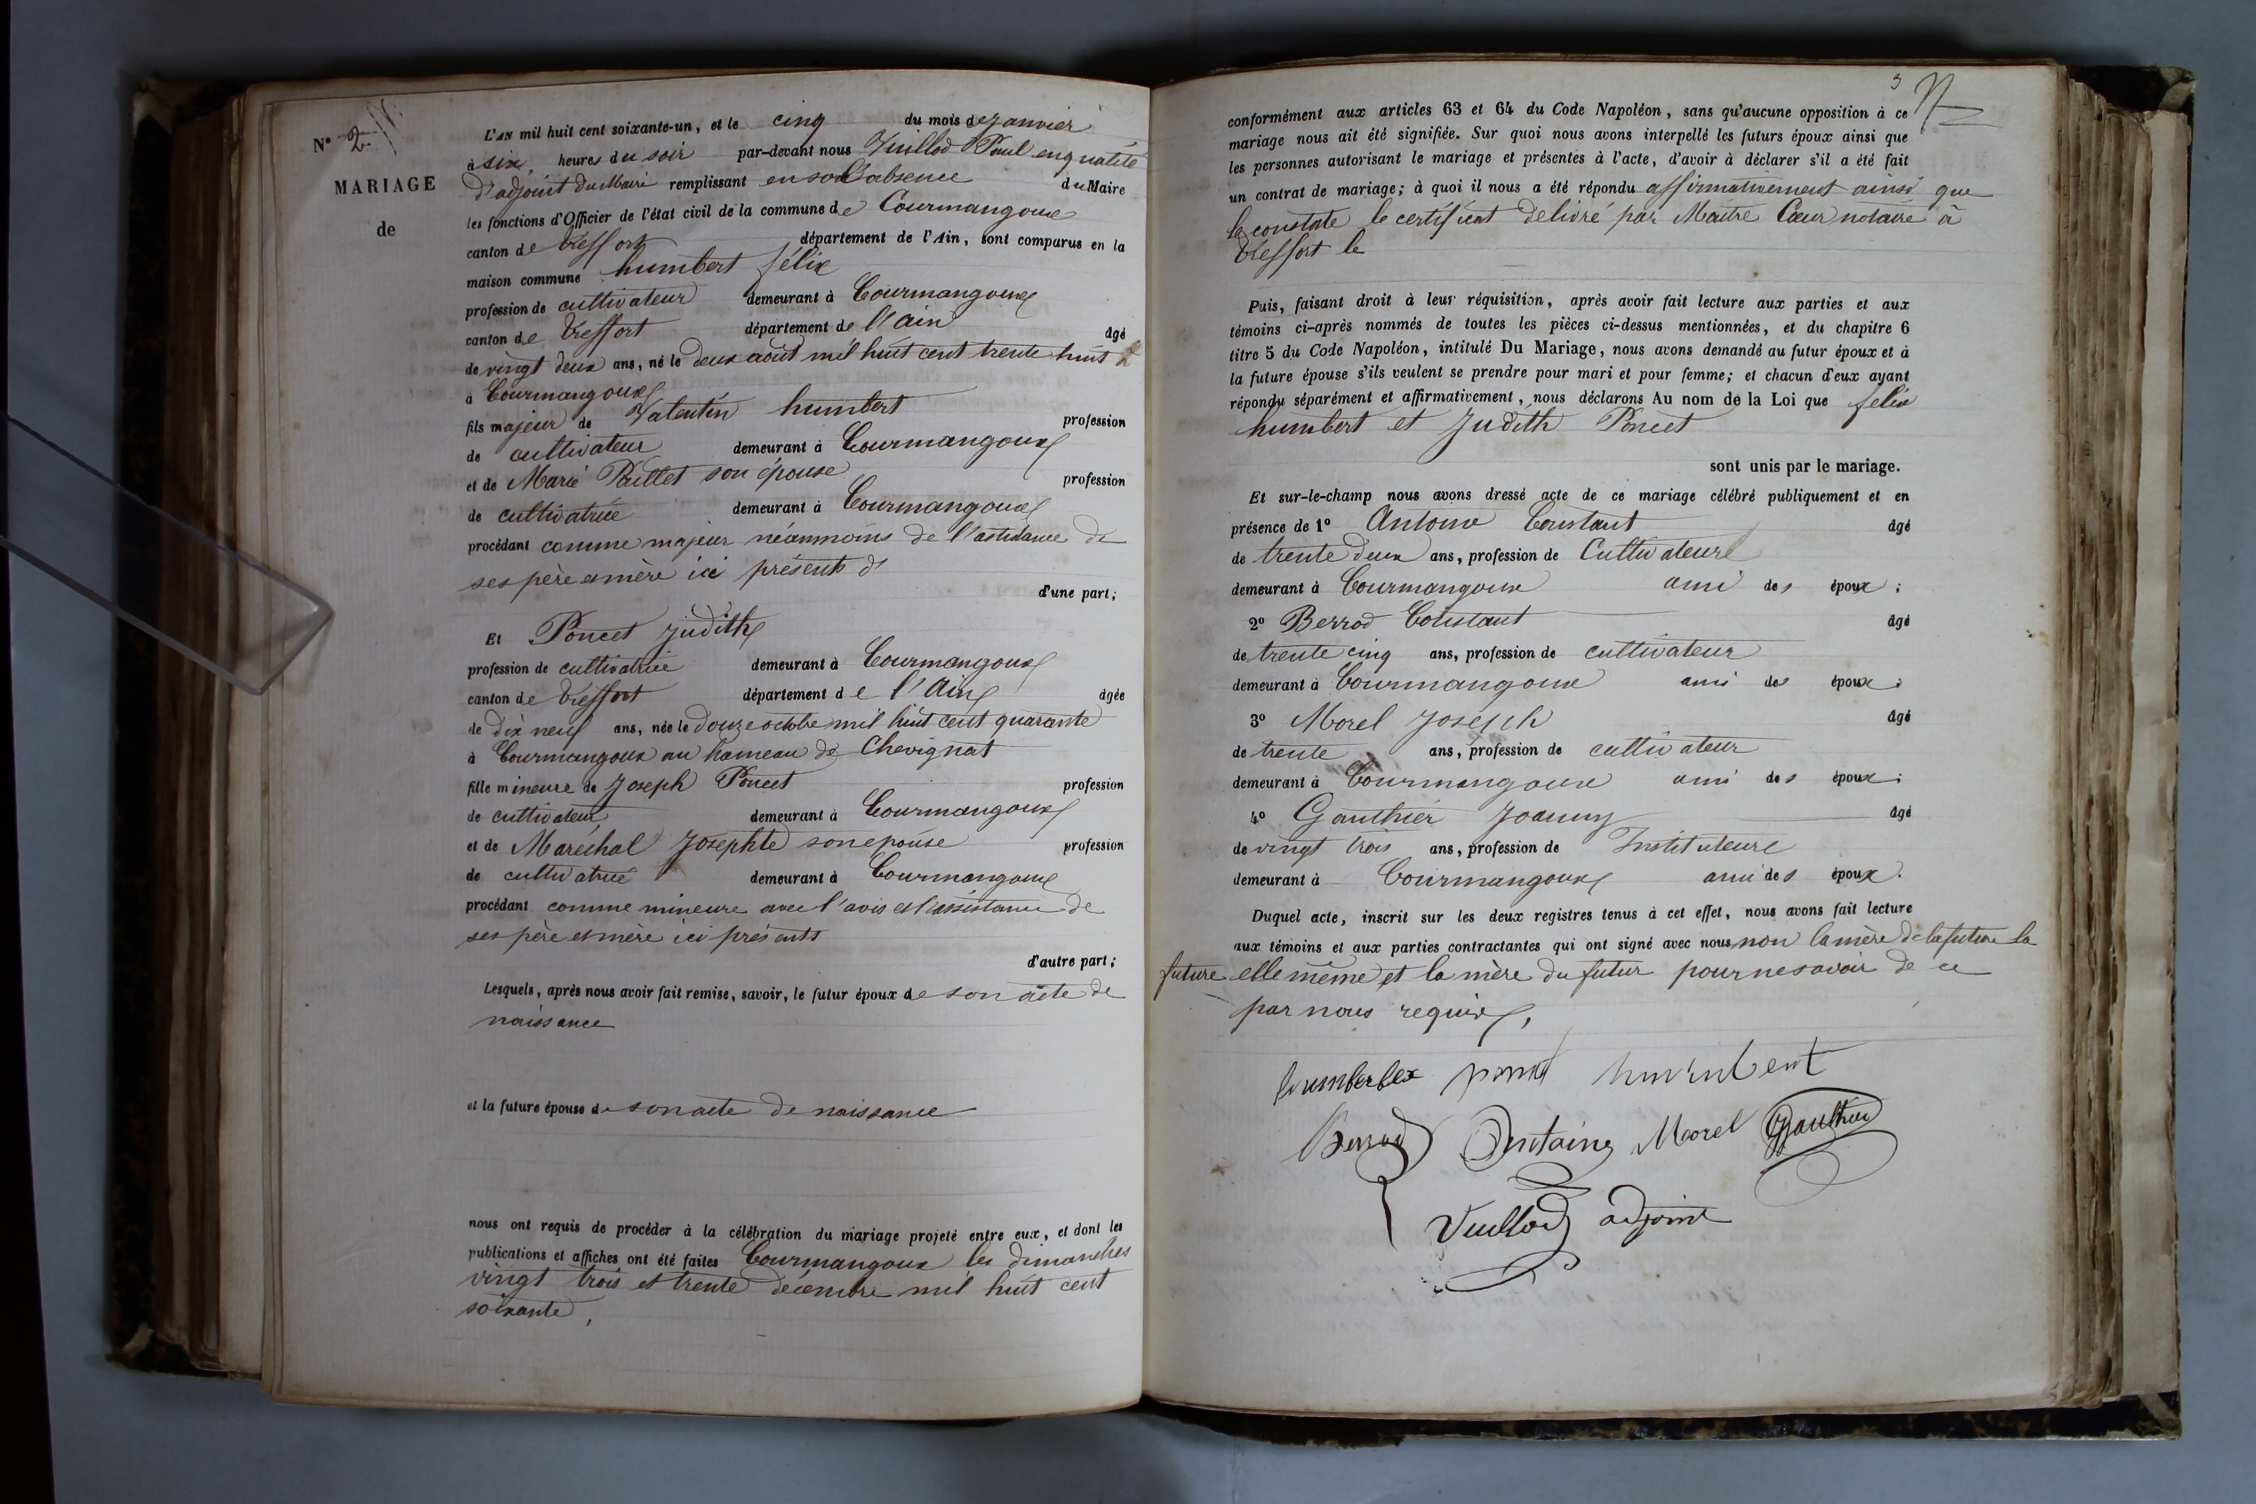 N° 2
MARIAGE
de
L'AN mil huit cent soixante-un, et le cinq du mois de janvier
à six heures du soir par-devant nous Vuillod Paul en qualité
d'adjoint du Maire remplissant en son absence du Maire
les fonctions d'Officier de l'état civil de la commune de Courmangoux
canton de Treffort département de l'Ain, sont comparus en la
maison commune humbert félix
profession de cultivateur demeurant à Courmangoux
canton de Treffort département de l'ain âgé
de vingt deux ans, né le deux août mil huit cent trente huit
à Courmangoux
fils majeur de Valentin humbert profession
de cultivateur demeurant à Courmangoux
et de Marie Paillet son épouse profession
de cultivatrice demeurant à Courmangoux
procédant comme majeur néanmoins de l'assistance de
ses père et mère ici présents
d'une part;
Et Poncet Judith
profession de cultivatrice demeurant à Courmangoux
canton de Treffort département de l'Ain âgée
de dix neuf ans, née le douze octobre mil huit cent quarante
à Courmangoux au hameau de Chevignat
fille mineure de Joseph Poncet profession
de cultivateur demeurant à Courmangoux
et de Maréchal Josephte son epouse profession
de cultivatrice demeurant à Courmangoux
procédant comme mineure avec l'avis et l'assistance de
ses père et mère ici présents
d'autre part;
Lesquels, après nous avoir fait remise, savoir, le futur époux de son acte de
naissance
et la future épouse de son acte de naissance
nous ont requis de procéder à la célébration du mariage projeté entre eux, et dont les
publications et affiches ont été faites Courmangoux les dimanches
vingt trois et trente décembre mil huit cent
soixante,
3
conformément aux articles 63 et 64 du Code Napoléon, sans qu'aucune opposition à ce
mariage nous ait été signifiée. Sur quoi nous avons interpellé les futurs époux ainsi que
les personnes autorisant le mariage et présentes à l'acte, d'avoir à déclarer s'il a été fait
un contrat de mariage; à quoi il nous a été répondu affirmativement ainsi que
le constate le certificat delivré par Maître Cœur notaire à
Treffort le
Puis, faisant droit à leur réquisition, après avoir fait lecture aux parties et aux
témoins ci-après nommés de toutes les pièces ci-dessus mentionnées, et du chapitre 6
titre 5 du Code Napoléon, intitulé Du Mariage, nous avons demandé au futur époux et à
la future épouse s'ils veulent se prendre pour mari et pour femme; et chacun d'eux ayant
répondu séparément et affirmativement, nous déclarons Au nom de la Loi que felix
humbert et Judith Poncet
sont unis par le mariage.
Et sur-le-champ nous avons dressé acte de ce mariage célébré publiquement et en
présence de 1° Antoine Constant âgé
de trente deux ans, profession de Cultivateur
demeurant à Courmangoux ami des époux;
2° Berrod Constant âgé
de trente cinq ans, profession de cultivateur
demeurant à Courmangoux ami des époux;
3° Morel Joseph âgé
de trente ans, profession de cultivateur
demeurant à Courmangoux ami des époux;
4° Gauthier Joanny âgé
de vingt trois ans, profession de Instituteur
demeurant à Courmangoux ami des époux.
Duquel acte, inscrit sur les deux registres tenus à cet effet, nous avons fait lecture
aux témoins et aux parties contractantes qui ont signé avec nous non la mère de la future la
future elle même et la mère du futur pour ne savoir de ce
par nous requis,
humbert humbert
Berrod Antoine Morel Gauthier
Vuillod adjoint